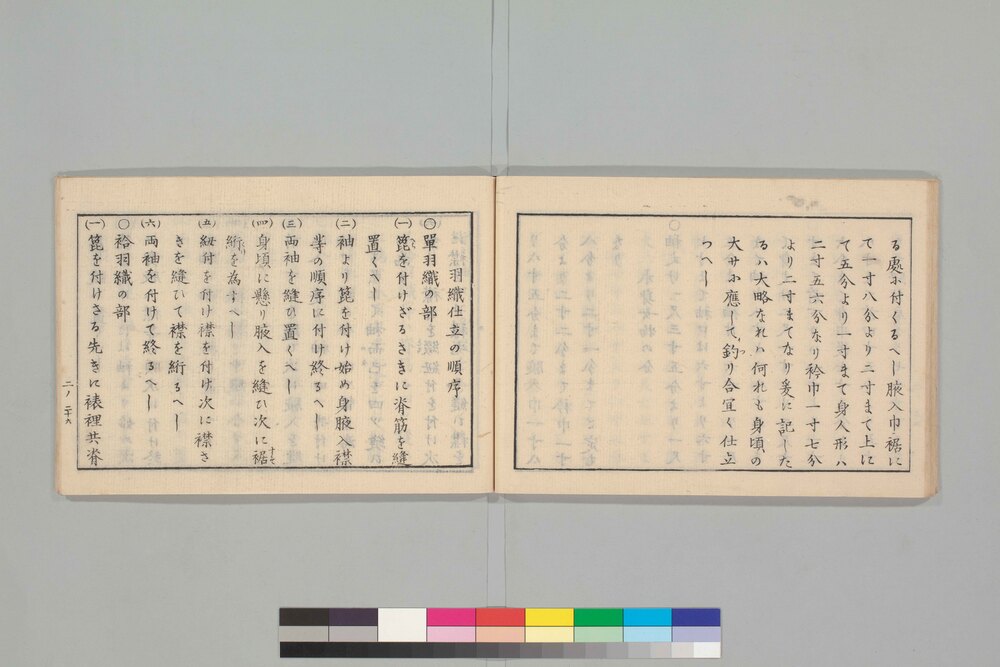 る處に付くるへし腋入巾裾に
て一寸八分より二寸まて上に
て五分より一寸まて身人形ハ
二寸五六分なり衿巾一寸七分
より二寸まてなり爰に記した
るハ大略なれハ何れも身頃の
大サに應して釣り合宜く仕立
つへし
〇單羽織仕立の順序
〇單羽織の部
(一)箆を付けざるさきに脊筋を縫
置くへし
(二)袖より箆を付け始め身腋入襟
等の順序に付け終るへし
(三)両袖を縫ひ置くへし
(四)身頃に懸り腋入を縫ひ次に裾
絎を為すへし
(五)紐付を付け襟を付け次に襟さ
きを縫ひて襟を絎るへし
(六)両袖を付けて終るへし
〇袷羽織の部
(一)箆を付けさる先きに裱裡共脊
二ノ二十六